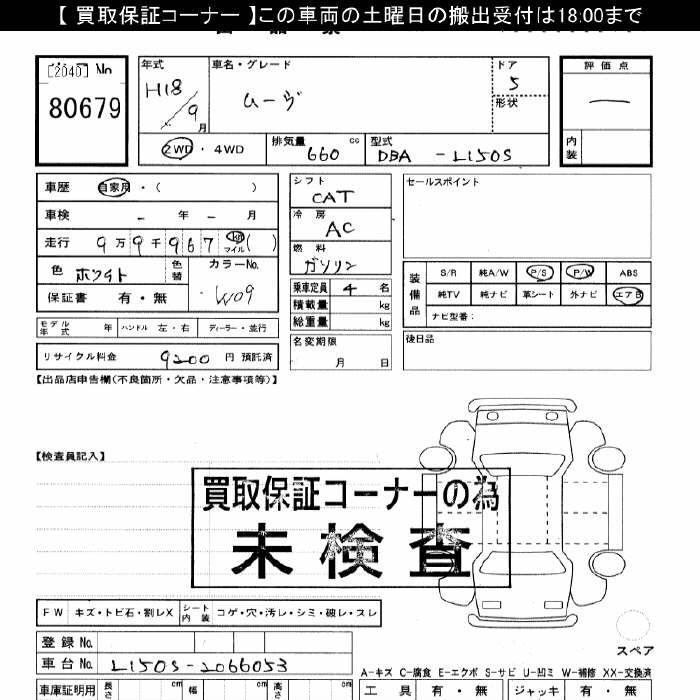 【 買取保証コーナー 】この車両の土曜日の搬出受付は18:00まで
[2040] No
80679
年式
H18/9月
車名・グレード
ムーヴ
ドア
5
形状
評価点
―
内装
2WD ・ 4WD
排気量
660 cc
型式
DBA - L150S
車歴 自家用・( )
車検 - 年 - 月
走行 9万9千967 km マイル ( )
色 ホワイト 色替
カラーNo.
W09
保証書 有・無
モデル年式 年 ハンドル 左・右 ディーラー・並行
リサイクル料金 9200 円 預託済
シフト
CAT
冷房
AC
燃料
ガソリン
乗車定員 4 名
積載量 kg
総重量 kg
名変期限
月 日
セールスポイント
装備品
S/R 純A/W P/S P/W ABS
純TV 純ナビ 革シート 外ナビ エアB
ナビ型番:
後日品
【出品店申告欄(不良箇所・欠品・注意事項等)】
【検査員記入】
買取保証コーナーの為
未検査
FW キズ・トビ石・割レX シート内装 コゲ・穴・汚レ・シミ・破レ・スレ
登録 No.
車台 No. L150S-2066053
スペア
A-キズ C-腐食 E-エクボ S-サビ U-凹ミ W-補修 XX-交換済
車庫証明用 長さ cm 幅 cm 高さ cm
工具 有・無 ジャッキ 有・無